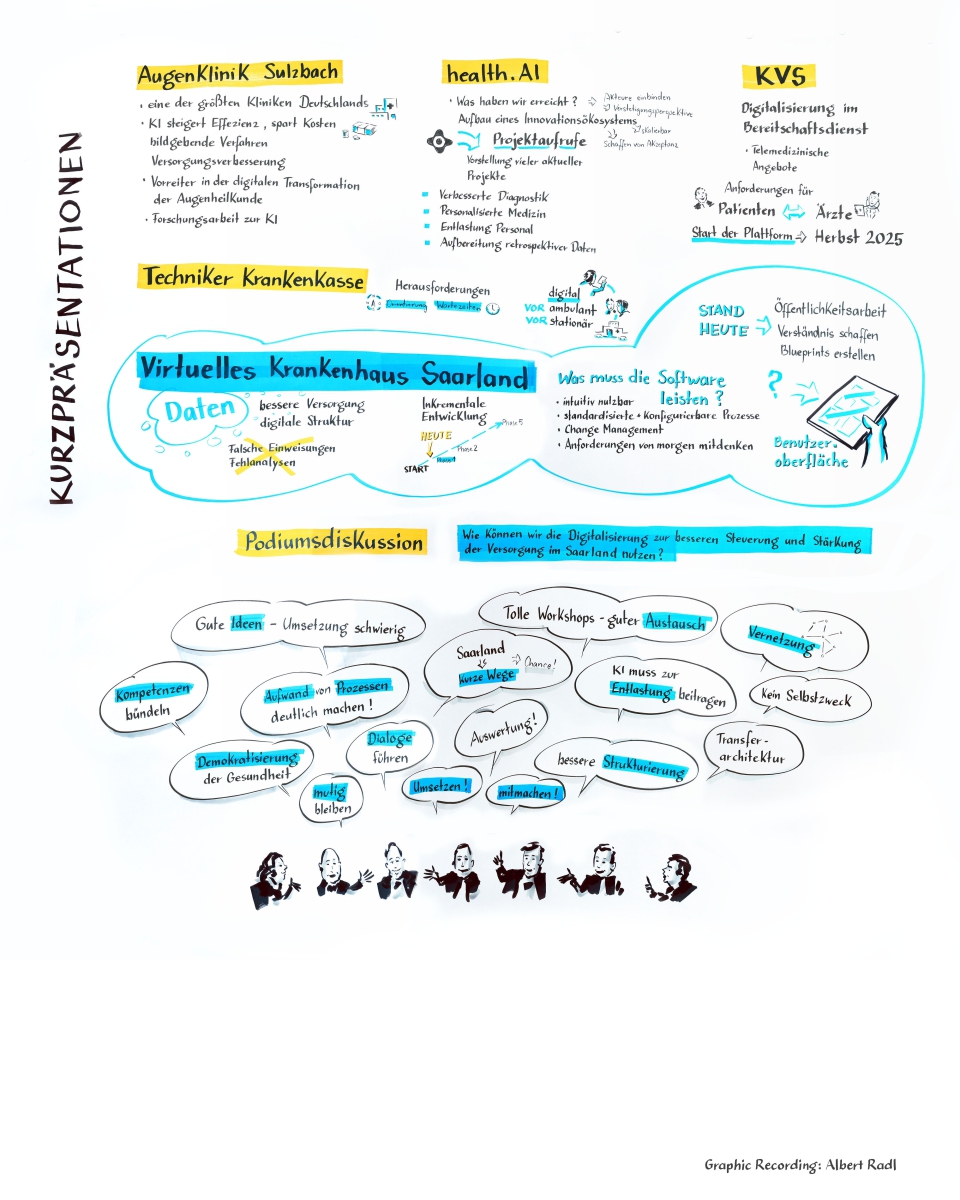 KURZPRÄSENTATIONEN
AugenKliniK Sulzbach
• eine der größten Kliniken Deutschlands
• KI steigert Effezienz, spart Kosten
bildgebende Verfahren
Versorgungsverbesserung
• Vorreiter in der digitalen Transformation
der Augenheilkunde
• Forschungsarbeit zur KI
health.AI
• Was haben wir erreicht?
Akteure einbinden
Verstetigungsperspektive
Aufbau eines Innovationsökosystems
skalierbar
Schaffen von Akzeptanz
Projektaufrufe
Vorstellung vieler aktueller
Projekte
Verbesserte Diagnostik
Personalisierte Medizin
Entlastung Personal
Aufbereitung retrospektiver Daten
KVS
Digitalisierung im
Bereitschaftsdienst
• Telemedizinische
Angebote
Anforderungen für
Patienten Ärzte
Start der Plattform Herbst 2025
Techniker Krankenkasse
Herausforderungen
Orientierung Wartezeiten
digital
VOR ambulant
VOR stationär
STAND
HEUTE
Öffentlichkeitsarbeit
Verständnis schaffen
Blueprints erstellen
Virtuelles Krankenhaus Saarland
Daten
bessere Versorgung
digitale Struktur
Falsche Einweisungen
Fehlanalysen
Inkrementale
Entwicklung
HEUTE
START
Phase 1
Phase 2
Phase 5
Was muss die Software
leisten?
• intuitiv nutzbar
• standardisierte + konfigurierbare Prozesse
• Change Management
• Anforderungen von morgen mitdenken
?
Benutzer-
oberfläche
Podiumsdiskussion
Wie können wir die Digitalisierung zur besseren Steuerung und Stärkung
der Versorgung im Saarland nutzen?
Gute Ideen - Umsetzung schwierig
Tolle Workshops - guter Austausch
Vernetzung
Saarland
kurze Wege
Chance!
Kompetenzen
bündeln
Aufwand von Prozessen
deutlich machen!
KI muss zur
Entlastung beitragen
Kein Selbstzweck
Dialoge
führen
Auswertung!
Transfer-
architektur
Demokratisierung
der Gesundheit
bessere Strukturierung
mutig
bleiben
Umsetzen!
mitmachen!
Graphic Recording: Albert Radl